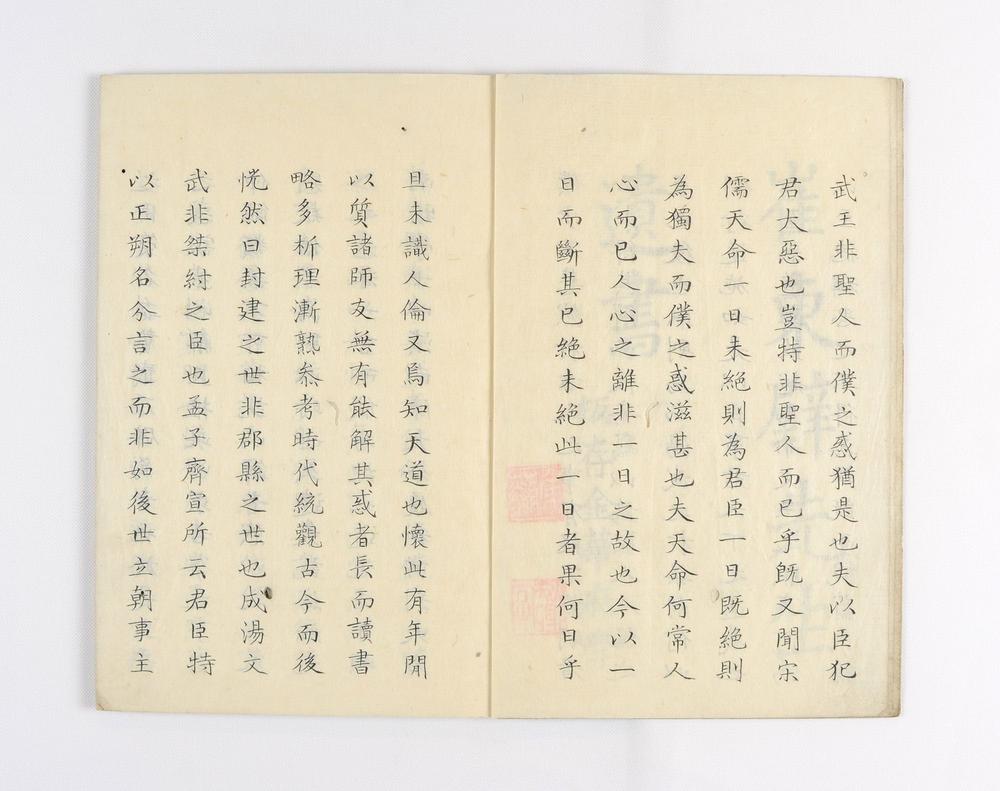 武王非聖人而僕之惑猶是也夫以臣犯
君大惡也豈特非聖人而已乎既又聞宋
儒天命一日未絕則為君臣一日既絕則
為獨夫而僕之惑滋甚也夫天命何常人
心而已人心之離非一日之故也今以一
日而斷其已絕未絕此一日者果何日乎
且未識人倫又烏知天道也懷此有年間
以質諸師友無有能解其惑者長而讀書
略多析理漸熟叅考時代統觀古今而後
恍然曰封建之世非郡縣之世也成湯文
武非桀紂之臣也孟子齊宣所云君臣特
以正朔名分言之而非如後世立朝事主